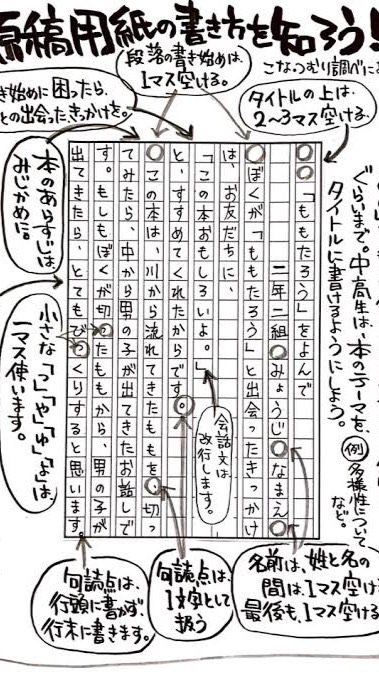 原稿用紙の書き方を知ろう!!
こなつむり調べによ
段落の書き始めは、
1マス空ける。
き始めに困ったら、
との出会ったきっかけを。
タイトルの上は、
2〜3マス空ける。
ぐらいまで。中高生は、本のテーマを、
タイトルに書けるようにしよう。
例 多様性について
など。
本のあらすじは
みじかめに。
「ももたろう」をよんで
二年二組 みょうじ なまえ
ぼくが「ももたろう」と出会ったきっかけ
は、お友だちに、
「この本おもしろいよ。」
と、すすめてくれたからです。
この本は、川から流れてきたももを、切っ
てみたら、中から男の子が出てきたお話しで
す。もしもぼくが切ったももから、男の子が
出てきたら、とてもびっくりすると思います。
会話文は
改行します。
小さな「っ」「ゃ」「ゅ」「ょ」は、
一マス使います。
句読点は、
行頭に書かず、
行末に書きます。
句読点は、
1文字として
扱う
名前は、姓と名の
間は、1マス空け
最後も、1マス空ける